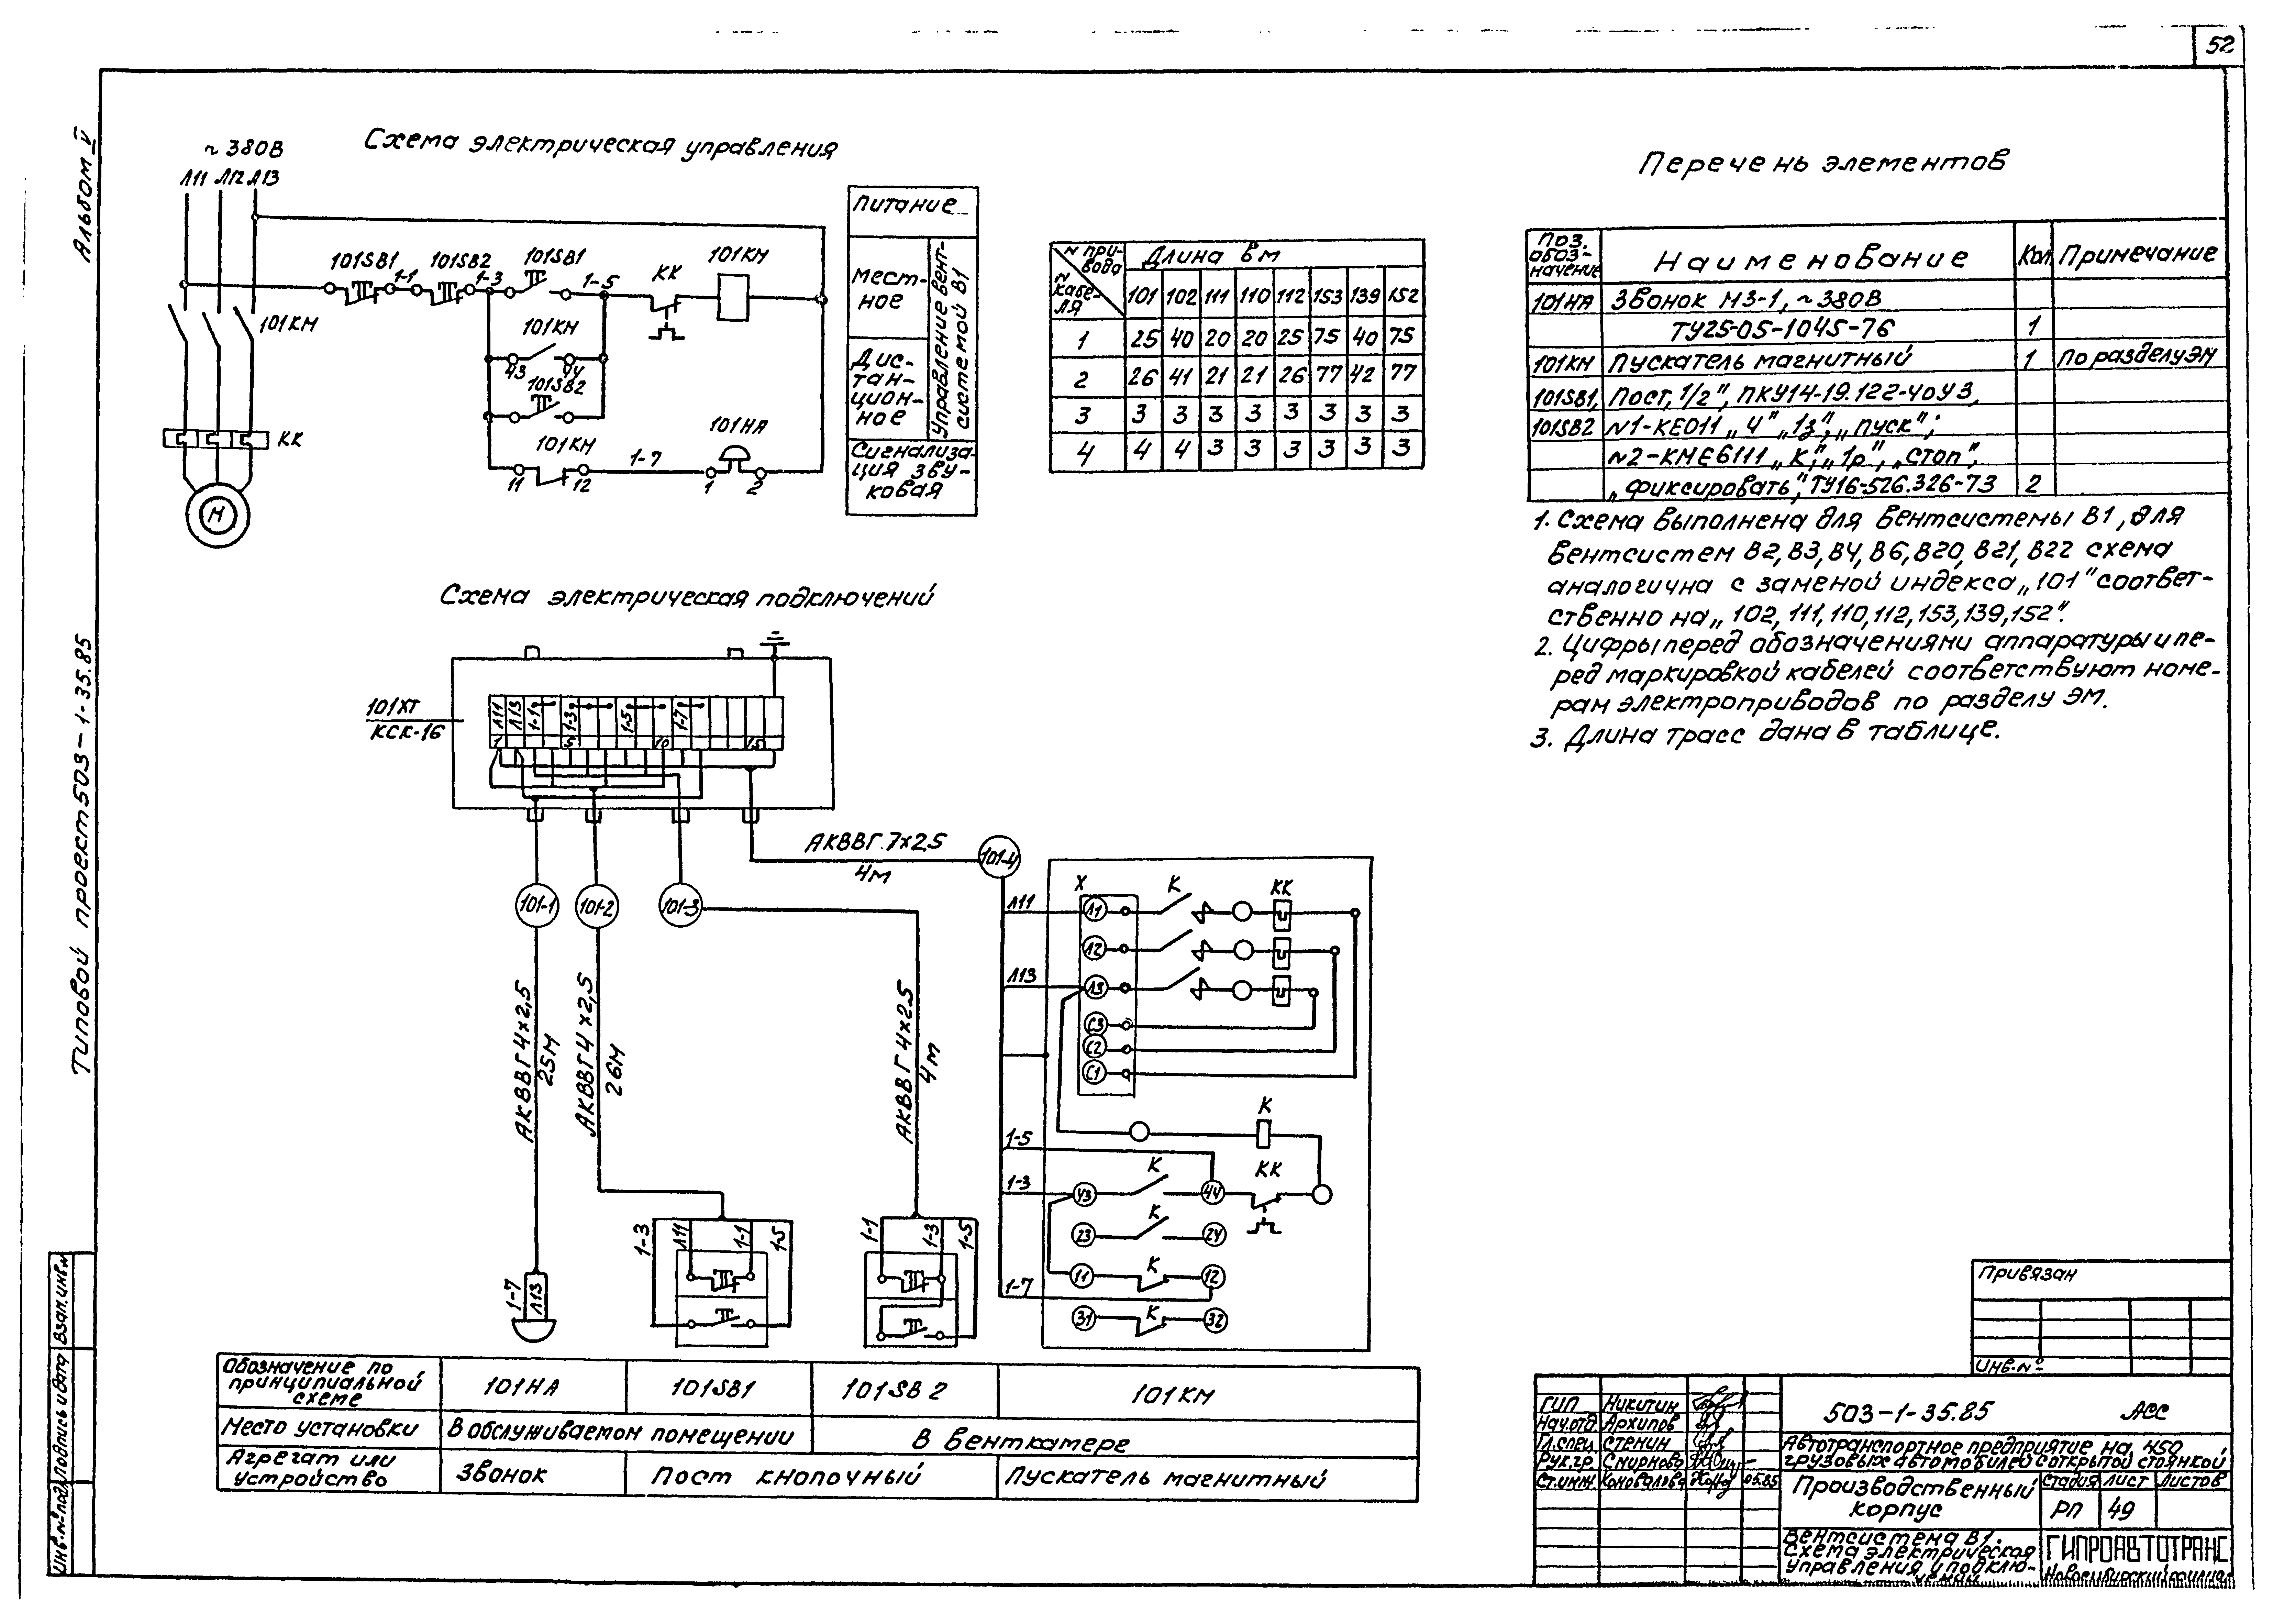 52
Альбом V
Типовой проект 503-1-35.85
Схема электрическая управления
~380В
Л11 Л12 Л13
101SB1 1-1 101SB2 1-3 101SB1 1-5 КК 101КМ
101КМ
101КМ
43 44
101SB2
КК
101КМ 1-7 101НА
11 12 1 2
М
Питание
Мест-
ное
Дис-
тан-
цион-
ное
Управление вент-
системой В1
Сигнализа-
ция зву-
ковая
N при-
вода
N
кабе-
ля
Длина в м
101 102 111 110 112 153 139 152
1 25 40 20 20 25 75 40 75
2 26 41 21 21 26 77 42 77
3 3 3 3 3 3 3 3 3
4 4 4 3 3 3 3 3 3
Перечень элементов
Поз.
обоз-
начение
Наименование Кол Примечание
101НА Звонок МЗ-1, ~380В
ТУ25-05-1045-76 1
101КМ Пускатель магнитный 1 По разделу ЭМ
101SB1, Пост „1/2", ПКУ14-19.122-40У3,
101SB2 N1-КЕ011 „Ч" „1з", „пуск";
N2-КМЕ6111 „К", „1р", „стоп",
„фиксировать", ТУ16-526.326-73 2
1. Схема выполнена для вентсистемы В1, для
вентсистем В2, В3, В4, В6, В20, В21, В22 схема
аналогична с заменой индекса „101" соответ-
ственно на „102, 111, 110, 112, 153, 139, 152".
2. Цифры перед обозначениями аппаратуры и пе-
ред маркировкой кабелей соответствуют номе-
рам электроприводов по разделу ЭМ.
3. Длина трасс дана в таблице.
Схема электрическая подключений
101ХТ
КСК-16
Л11 Л13 1-1 1-3 1-5 1-7
1 5 10 15
АКВВГ 7х2,5
4м
101-1 101-2 101-3 101-4
АКВВГ 4х2,5
25м
АКВВГ 4х2,5
26м
АКВВГ 4х2.5
4м
Х К КК
Л11 Л1
Л2
Л13 Л3
С3
С2
С1
К
1-5
К КК
1-3 43 44
К
23 24
К
11 12
1-7
К
31 32
1-7 Л13
1-3 Л11 1-1 1-5
1-1 1-3 1-5
Обозначение по
принципиальной
схеме
101НА 101SB1 101SB2 101КМ
Место установки В обслуживаемом помещении В венткамере
Агрегат или
устройство
Звонок Пост кнопочный Пускатель магнитный
Привязан
Инв.№
ГИП Никитин
Нач.отд. Архипов
Гл.спец. Стенин
Рук.гр. Смирнова
Ст.инж. Коновалова 05.85
503-1-35.85 АСС
Автотранспортное предприятие на 450
грузовых автомобилей с открытой стоянкой
Производственный
корпус
Стадия Лист Листов
РП 49
Вентсистема В1.
Схема электрическая
управления и подклю-
чений
ГИПРОАВТОТРАНС
Новосибирский филиал
Инв.№ подл. Подпись и дата Взам.инв.№